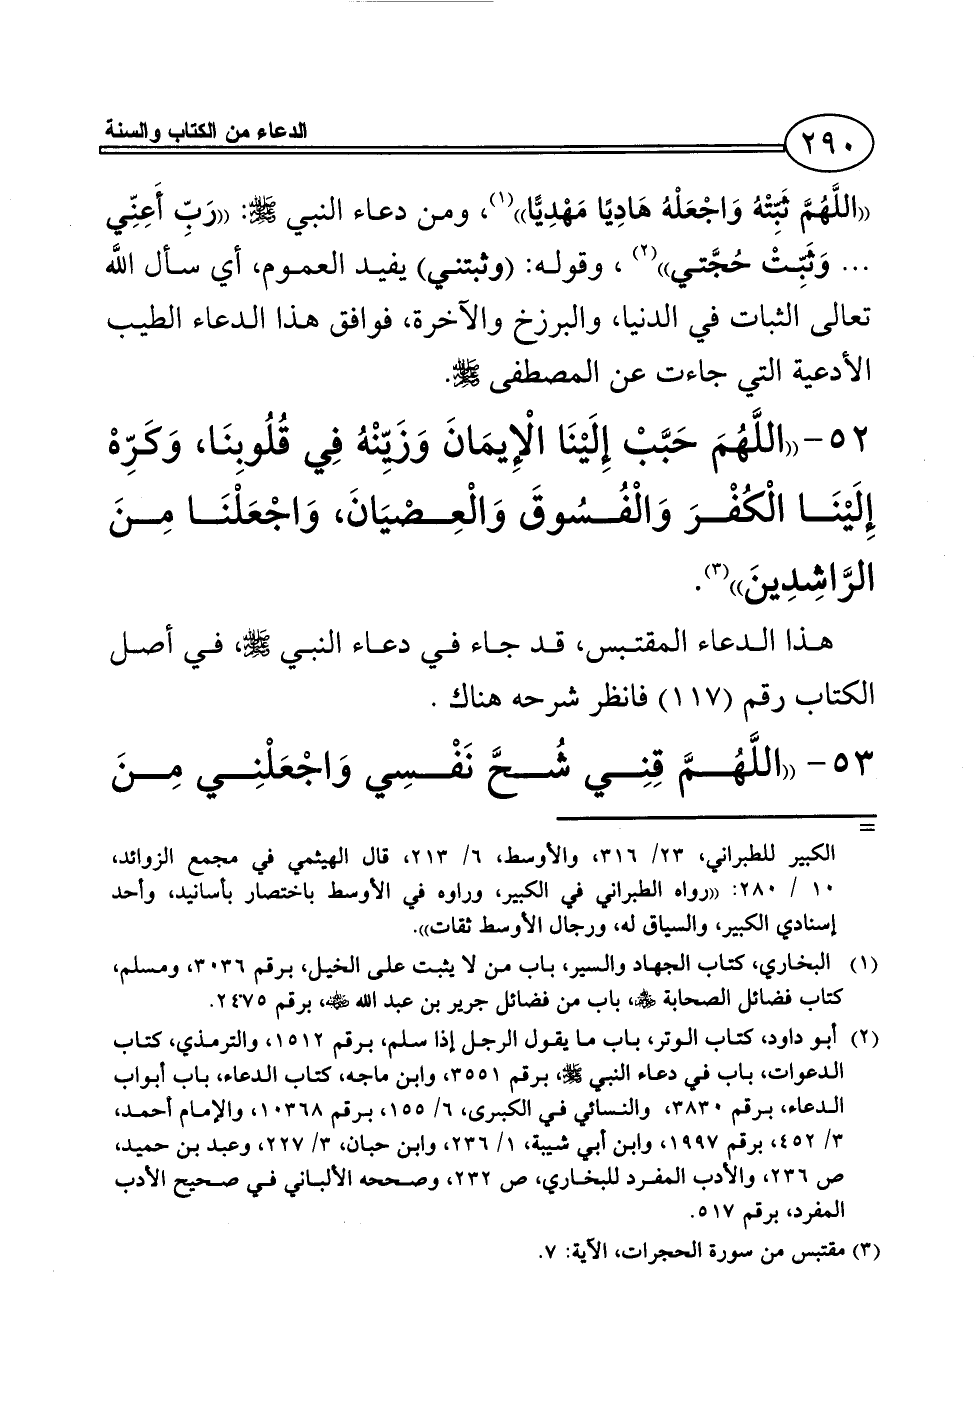 ٢٩٠ الدعاء من الكتاب والسنة
((اللَّهُمَّ ثَبِّتْهُ وَاجْعَلْهُ هَادِيًا مَهْدِيًّا))(١)، ومن دعاء النبي ﷺ: ((رَبِّ أَعِنِّي
... وَثَبِّتْ حُجَّتي))(٢) ، وقوله: (وثبتني) يفيد العموم، أي سأل اللَّه
تعالى الثبات في الدنيا، والبرزخ والآخرة، فوافق هذا الدعاء الطيب
الأدعية التي جاءت عن المصطفى ﷺ.
٥٢- ((اللَّهُمَ حَبَّبْ إِلَيْنَا الْإِيمَانَ وَزَيِّنْهُ فِي قُلُوبِنَا، وَكَرِّهْ
إِلَيْنَا الْكُفْرَ وَالْفُسُوقَ وَالْعِصْيَانَ، وَاجْعَلْنَا مِنَ
الرَّاشِدِينَ))(٣).
هذا الدعاء المقتبس، قد جاء في دعاء النبي ﷺ، في أصل
الكتاب رقم (١١٧) فانظر شرحه هناك .
٥٣- ((اللَّهُمَّ قِنِي شُحَّ نَفْسِي وَاجْعَلْنِي مِنَ
=
الكبير للطبراني، ٢٣/ ٣١٦، والأوسط، ٦/ ٢١٣، قال الهيثمي في مجمع الزوائد،
١٠ / ٢٨٠: ((رواه الطبراني في الكبير، وراوه في الأوسط باختصار بأسانيد، وأحد
إسنادي الكبير، والسياق له، ورجال الأوسط ثقات)).
(١) البخاري، كتاب الجهاد والسير، باب من لا يثبت على الخيل، برقم ٣٠٣٦، ومسلم،
كتاب فضائل الصحابة ﷺ، باب من فضائل جرير بن عبد الله ﷺ، برقم ٢٤٧٥.
(٢) أبو داود، كتاب الوتر، باب ما يقول الرجل إذا سلم، برقم ١٥١٢، والترمذي، كتاب
الدعوات، باب في دعاء النبي ﷺ، برقم ٣٥٥١، وابن ماجه، كتاب الدعاء، باب أبواب
الدعاء، برقم ٣٨٣٠، والنسائي في الكبرى، ٦/ ١٥٥، برقم ١٠٣٦٨، والإمام أحمد،
٣/ ٤٥٢، برقم ١٩٩٧، وابن أبي شيبة، ١/ ٢٣٦، وابن حبان، ٣/ ٢٢٧، وعبد بن حميد،
ص ٢٣٦، والأدب المفرد للبخاري، ص ٢٣٢، وصححه الألباني في صحيح الأدب
المفرد، برقم ٥١٧.
(٣) مقتبس من سورة الحجرات، الآية: ٧.